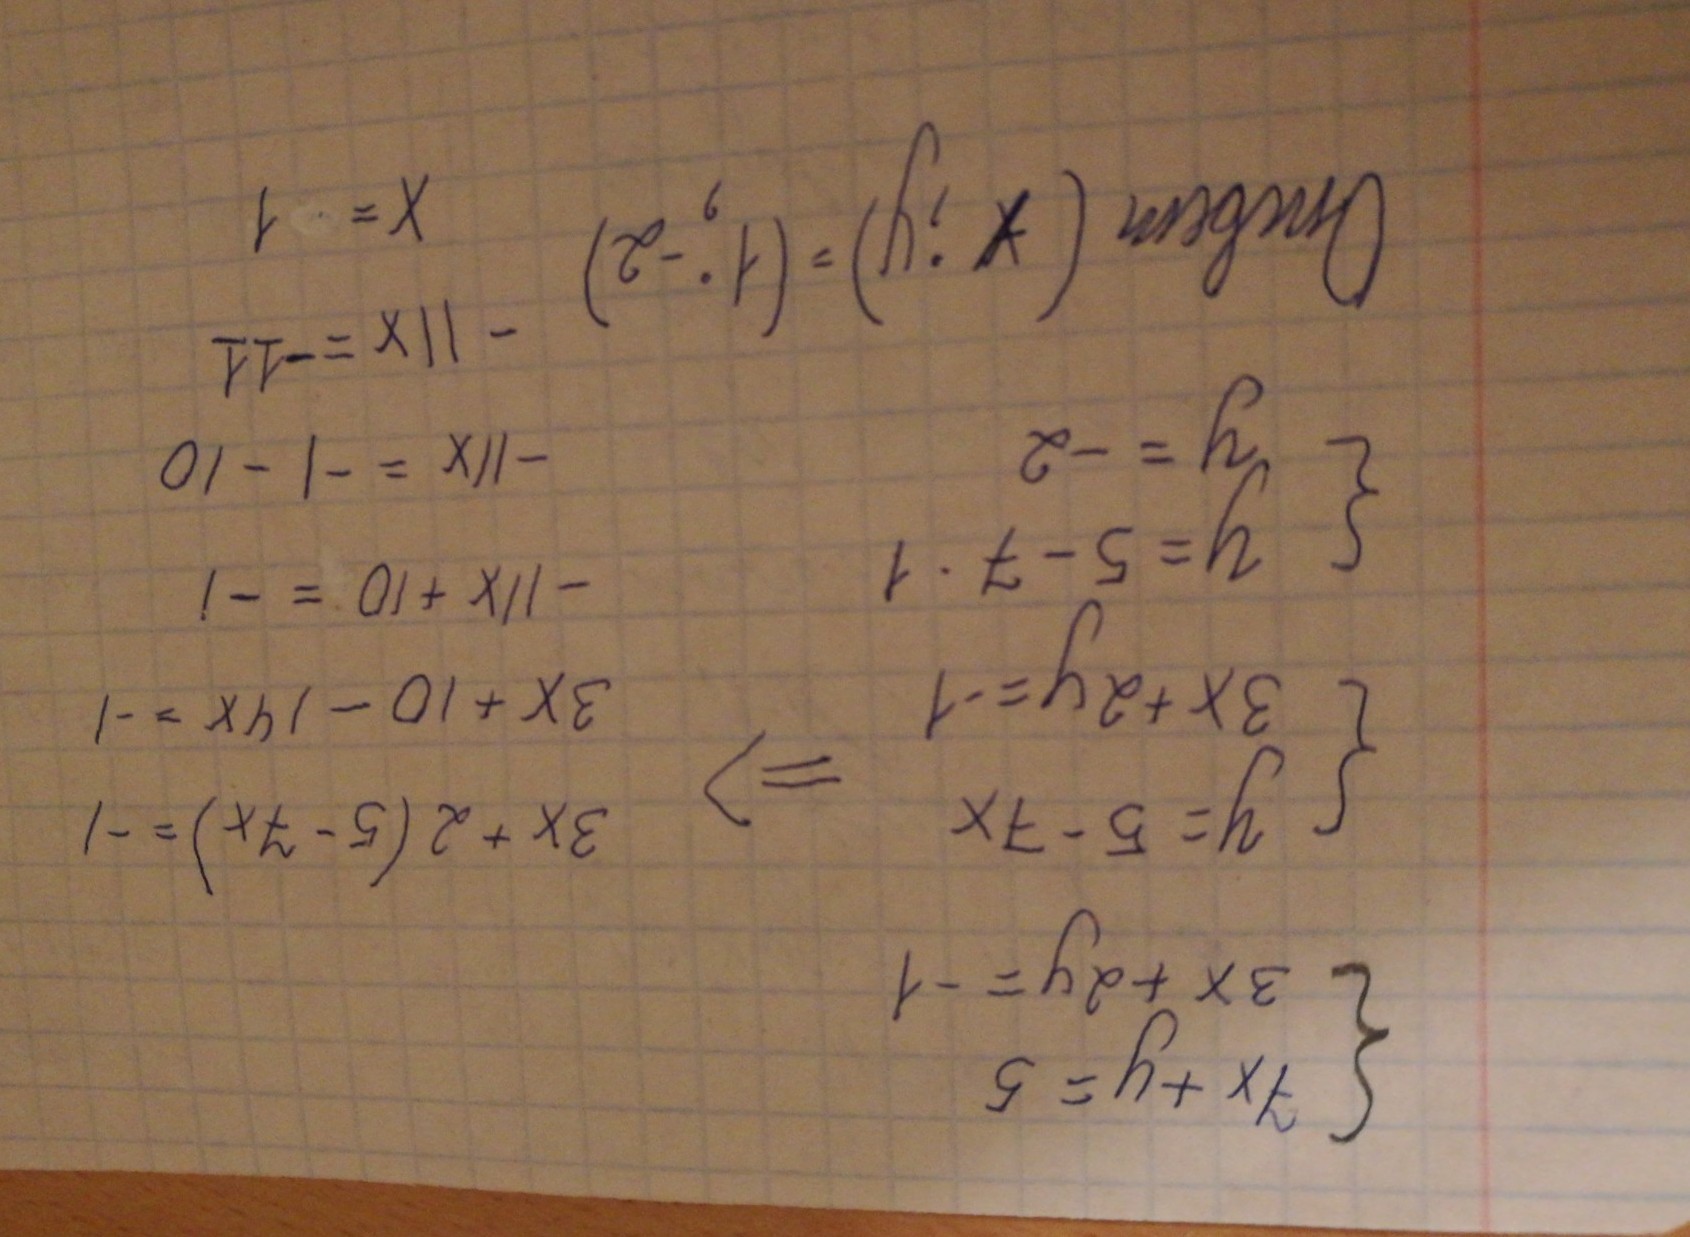 7x + y = 5
3x + 2y = -1
y = 5 - 7x
3x + 2y = -1
=>
3x + 2(5 - 7x) = -1
3x + 10 - 14x = -1
-11x + 10 = -1
-11x = -1 - 10
-11x = -11
x = 1
y = 5 - 7 · 1
y = -2
Ответ (x; y) = (1; -2)